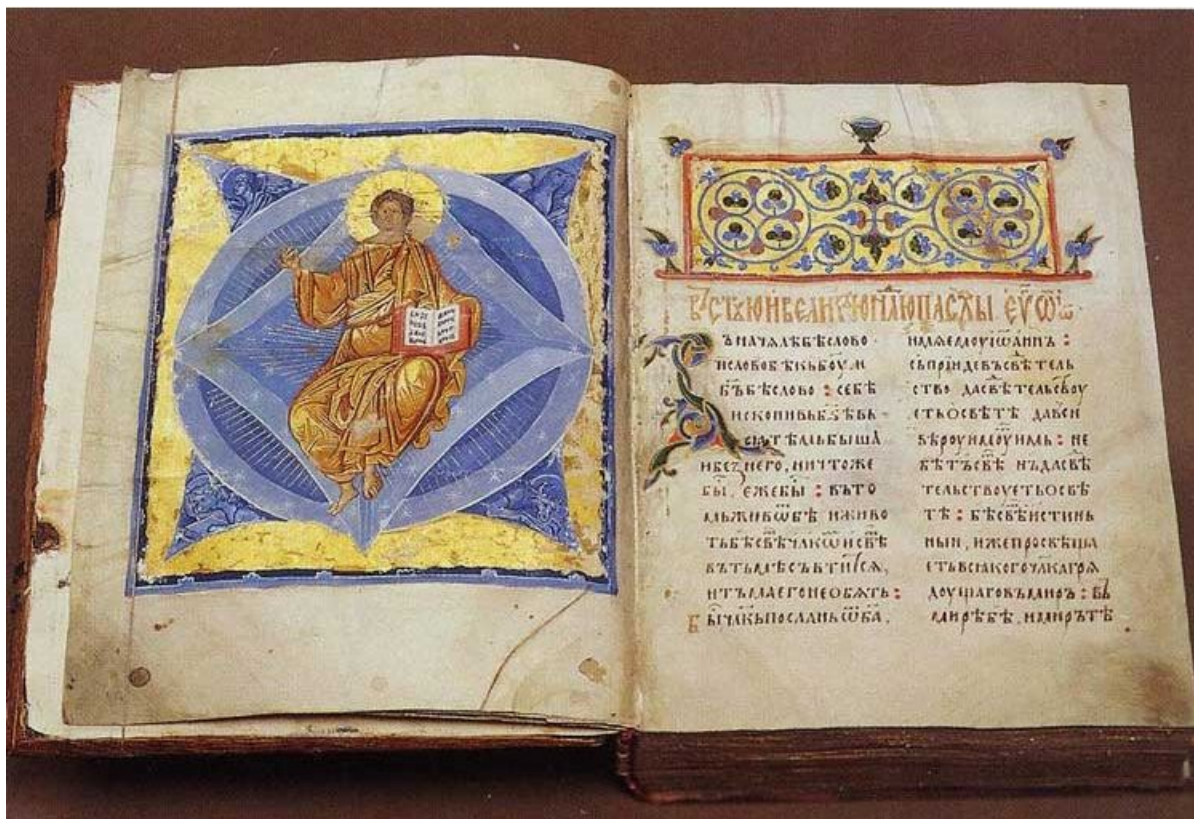 въ с҃тꙋю и великꙋю н҃лю пасхы еѵ҃ѿ іѡ҃
Въ начѧлѣ бѣ слово
и слово бѣ къ боу, и
б҃ъ бѣ слово : се бѣ
искони въ б҃а вь
сѧ тѣмь бышѧ
и без него, ничтоже
бы҃, еже бы҃ : въ то
мь живѿ бѣ и живо
тъ бѣ свѣ҃ ч҃лкѡⷨ и свѣ҃
въ тьмѣ свѣтитсѧ,
и тъма его не обѧтъ :
Бы҃ ч҃лкь посланъ ѿ б҃а,
имѧ емоу іѡ҃аннъ :
съ прїиде въ свѣтель
ство да свѣтельствоу
еть о свѣтѣ да вси
вѣроу имоуⷮ имь : не
бѣ тъ свѣ҃ нъ да свѣ
тельствоуеть о свѣ
тѣ : бѣ свѣ҃ истинь
нын, иже просвѣща
еть всѧкого ч҃лка грѧ
доущаго въ миръ : въ
мирѣ бѣ, и мирь тѣ